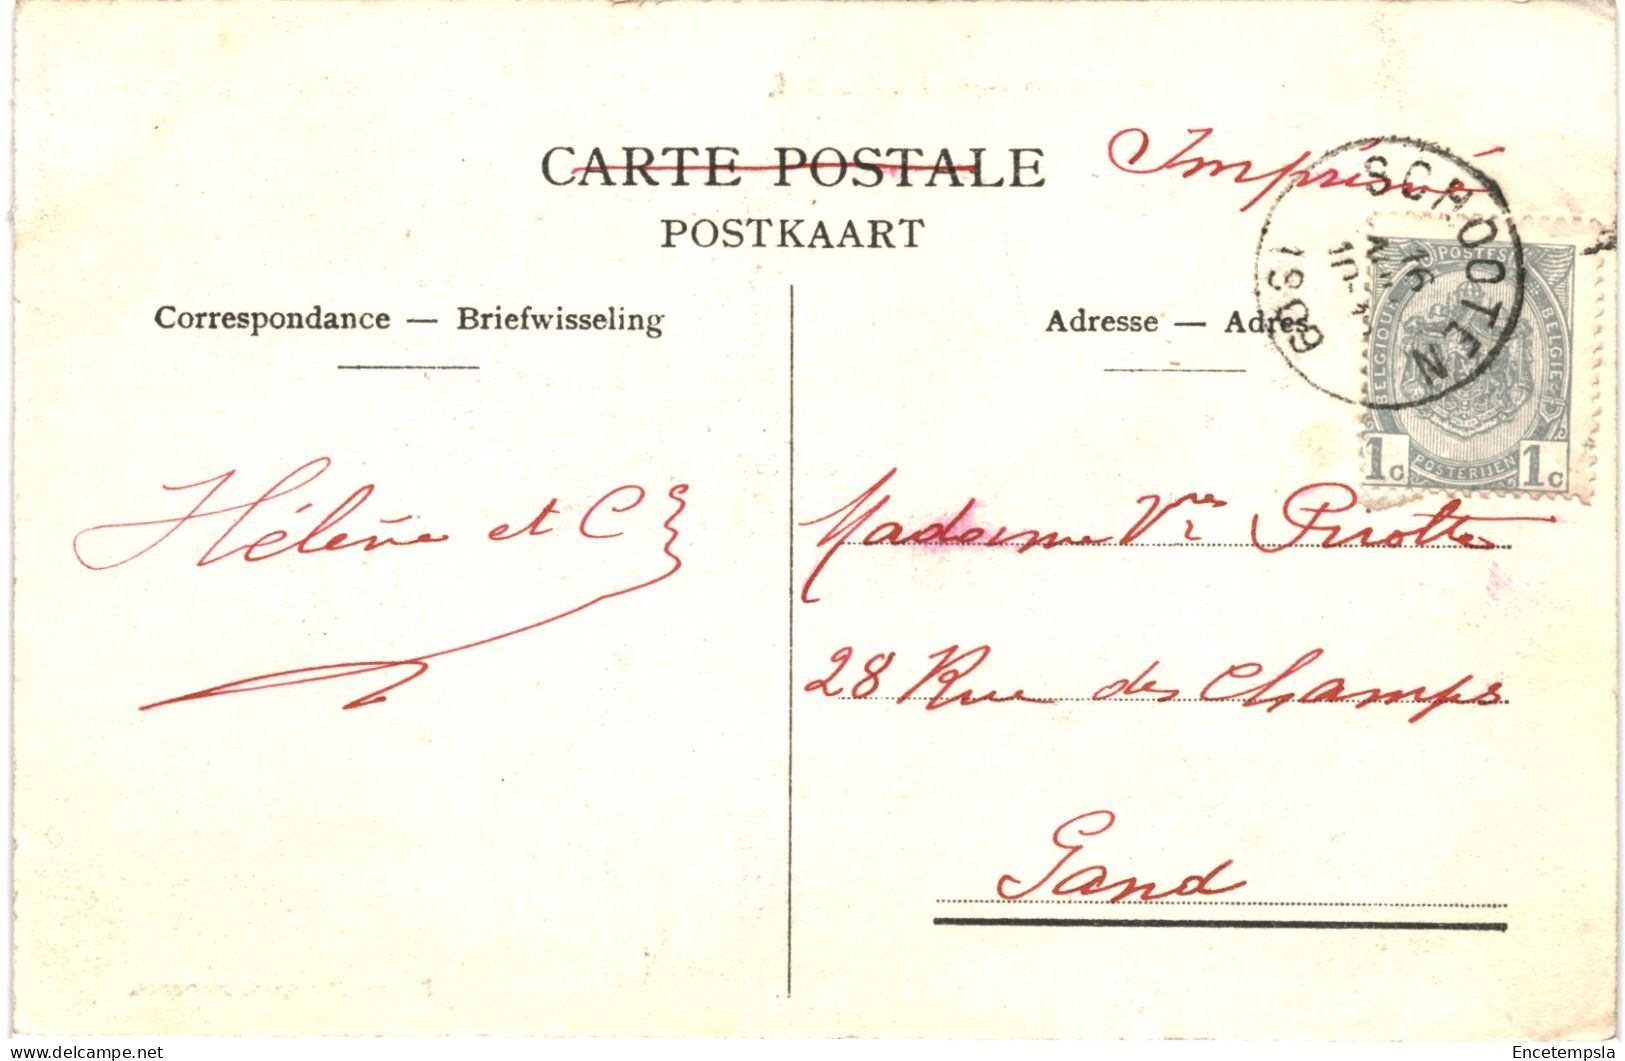 CARTE POSTALE
Imprimé
POSTKAART
SCHOOTEN
16
1909
POSTES
BELGIQUE
BELGIË
1c 1c
POSTERIJEN
Correspondance — Briefwisseling
Adresse — Adres
Hélène et C
Madame Vve Piriotte
28 Rue des Champs
Gand
Encetempsla